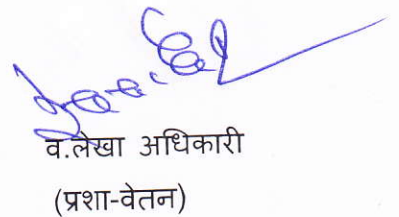 व.लेखा अधिकारी
(प्रशा-वेतन)